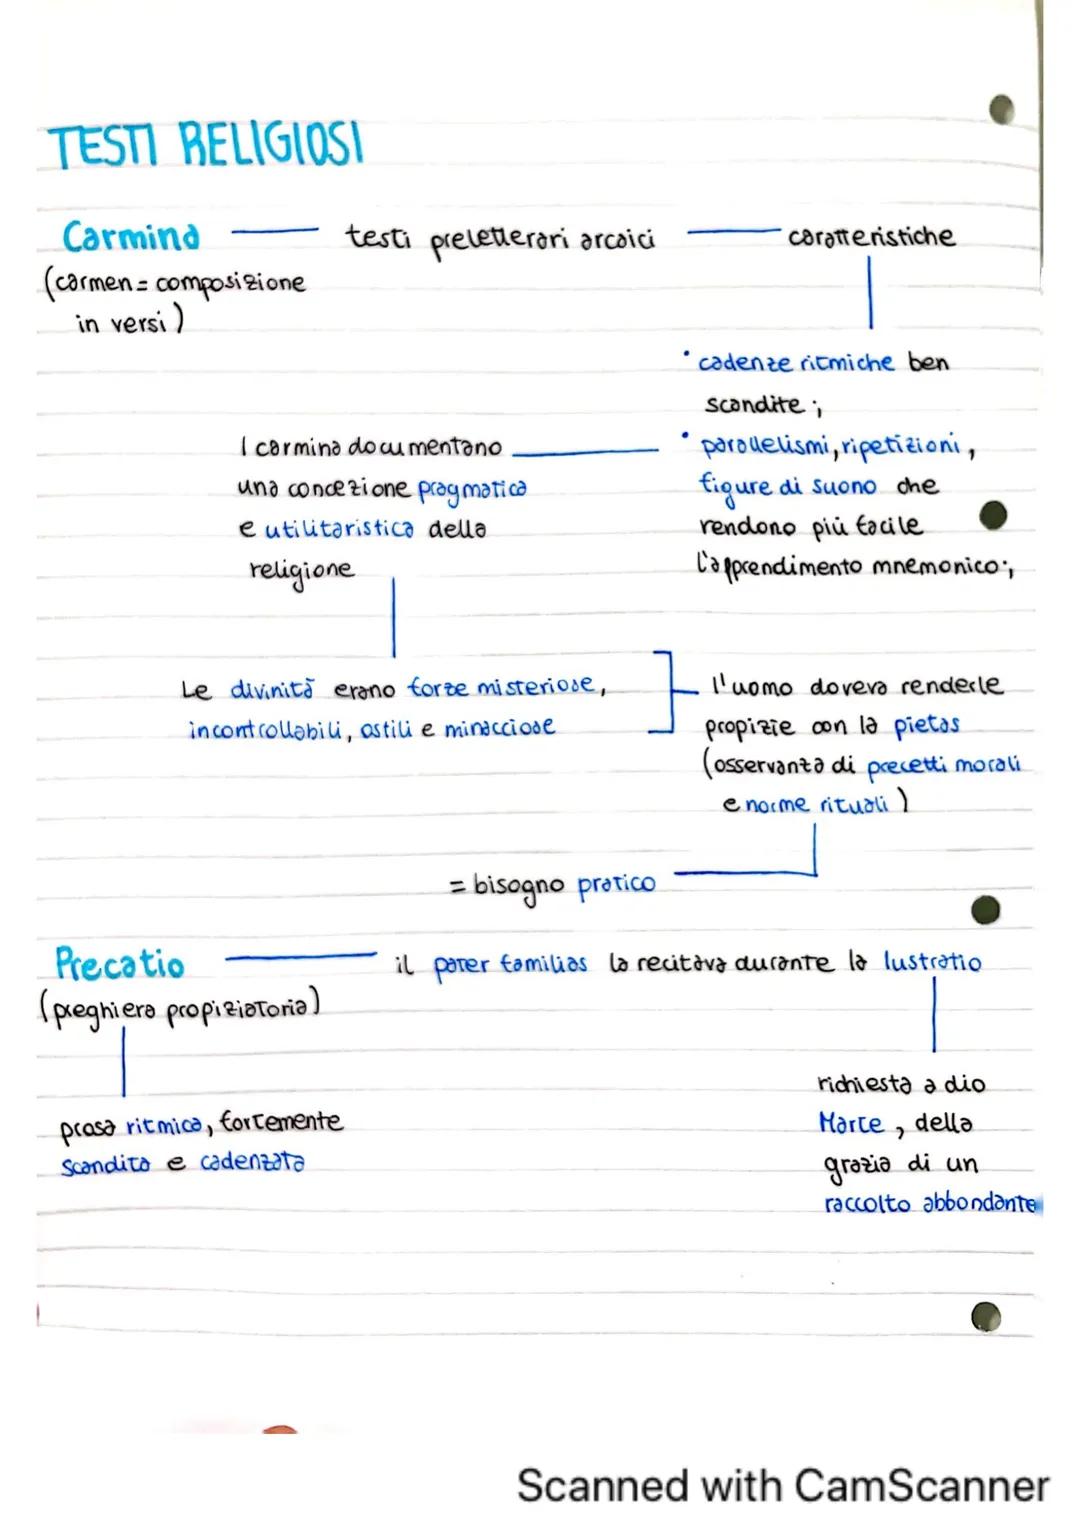 TESTI RELIGIOSI
Carmina testi preletterari arcaici caratteristiche
(carmen = composizione
in versi)
• cadenze ritmiche ben
scandite;
• parallelismi, ripetizioni,
figure di suono che
rendono più facile
l'apprendimento mnemonico;
I carmina documentano
una concezione pragmatica
e utilitaristica della
religione
Le divinità erano forze misteriose,
incontrollabili, ostili e minacciose
l'uomo doveva renderle
propizie con la pietas
(osservanza di precetti morali
e norme rituali)
= bisogno pratico
Precatio il pater familias la recitava durante la lustratio
(preghiera propiziatoria)
prosa ritmica, fortemente
scandita e cadenzata
richiesta a dio
Marte, della
grazia di un
raccolto abbondante
Scanned with CamScanner